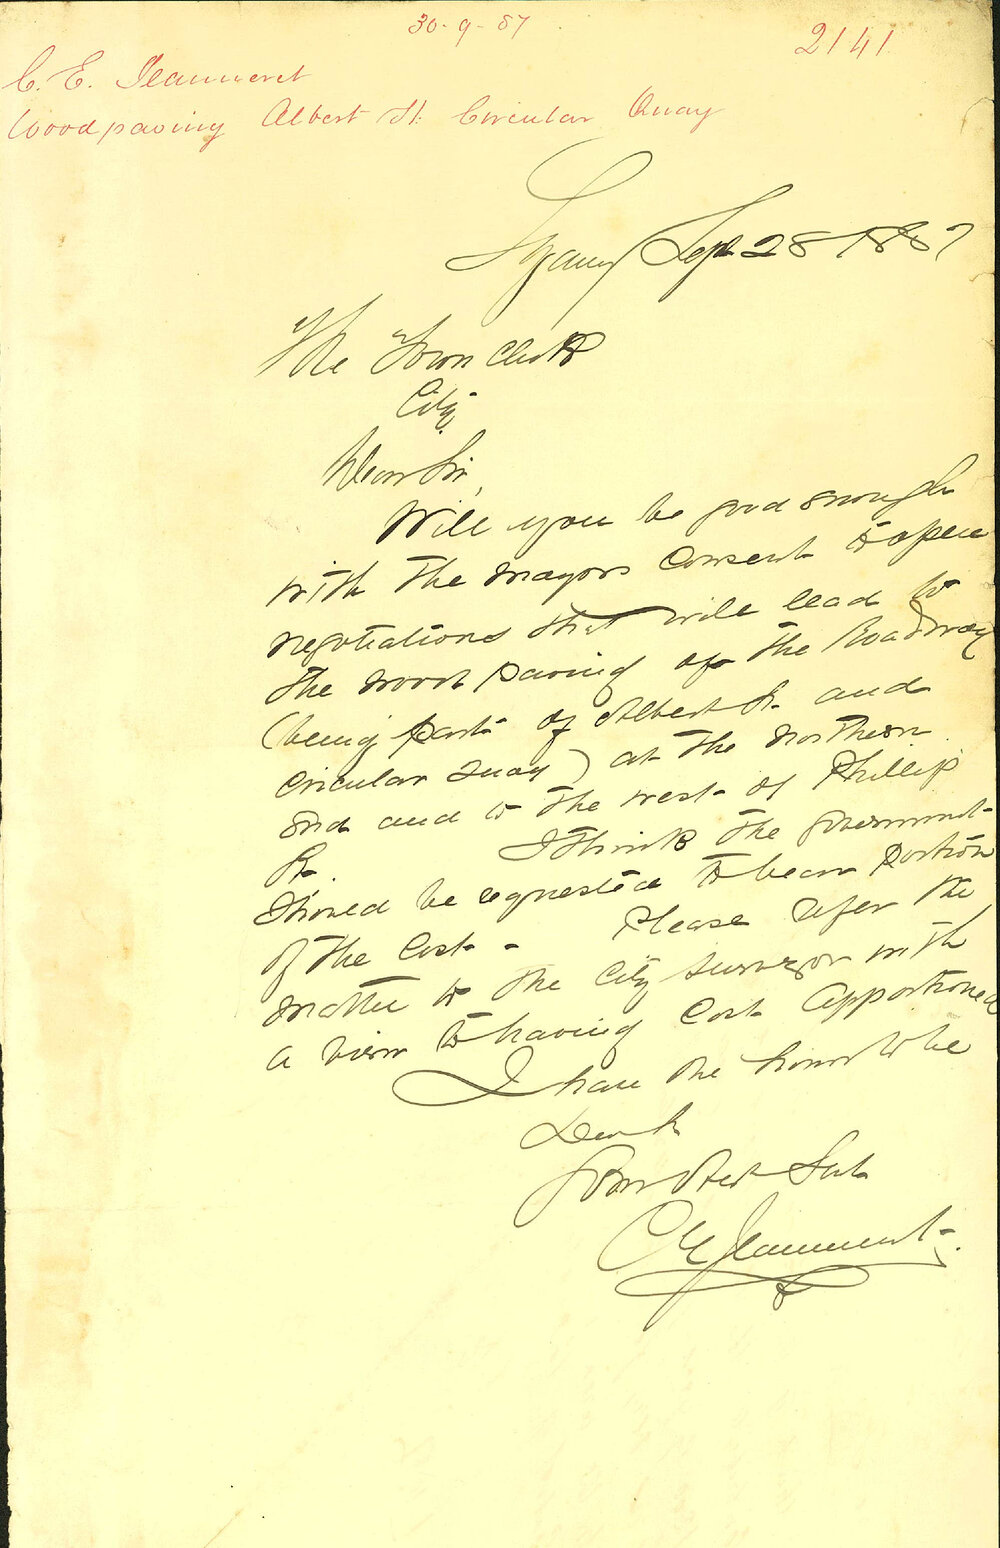 30-9-87
2141
C. E. Jeanneret
Woodpaving Albert St. Circular Quay
Sydney Sept 28 1887
The Town Clerk
City
Dear Sir,
Will you be good enough
with the Mayors Consent to open
negotiations that will lead to
the wood paving of the Roadway
(being part of Albert St. and
Circular Quay) at the Northern
end and to the west of Phillip
St. I think the Government
should be requested to bear portion
of the Cost - Please refer the
matter to the City Surveyor with
a view to having Cost Apportioned
I have the honor to be
Dear Sir
Your Obedt Servt
C E Jeanneret.